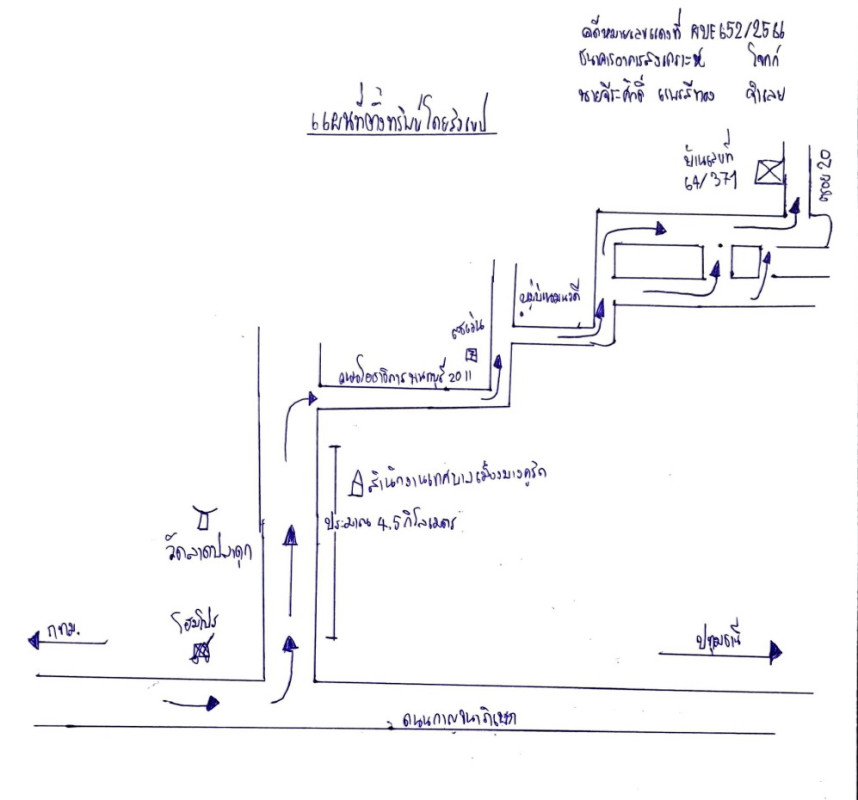 คดีหมายเลขแดงที่ ผบE652/2566
ธนาคารอาคารสงเคราะห์ โจทก์
นายจีระศักดิ์ แพรสีทอง จำเลย
แผนที่ตั้งทรัพย์โดยสังเขป
บ้านเลขที่
64/371
ซอย 20
หมู่บ้าน
เซเว่น
ถนน นนทบุรี 2011
สำนักงานเทศบาลเมืองบางคูรัด
ประมาณ 4.5 กิโลเมตร
วัดลาดปลาดุก
โฮมโปร
กทม.
ปทุมธานี
ถนนกาญจนาภิเษก